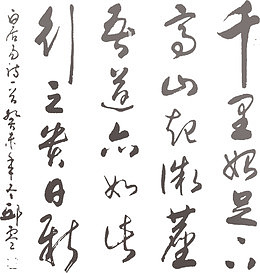 千里始足下
高山起微塵
吾道亦如此
行之貴日新
白居易诗一首癸未年冬